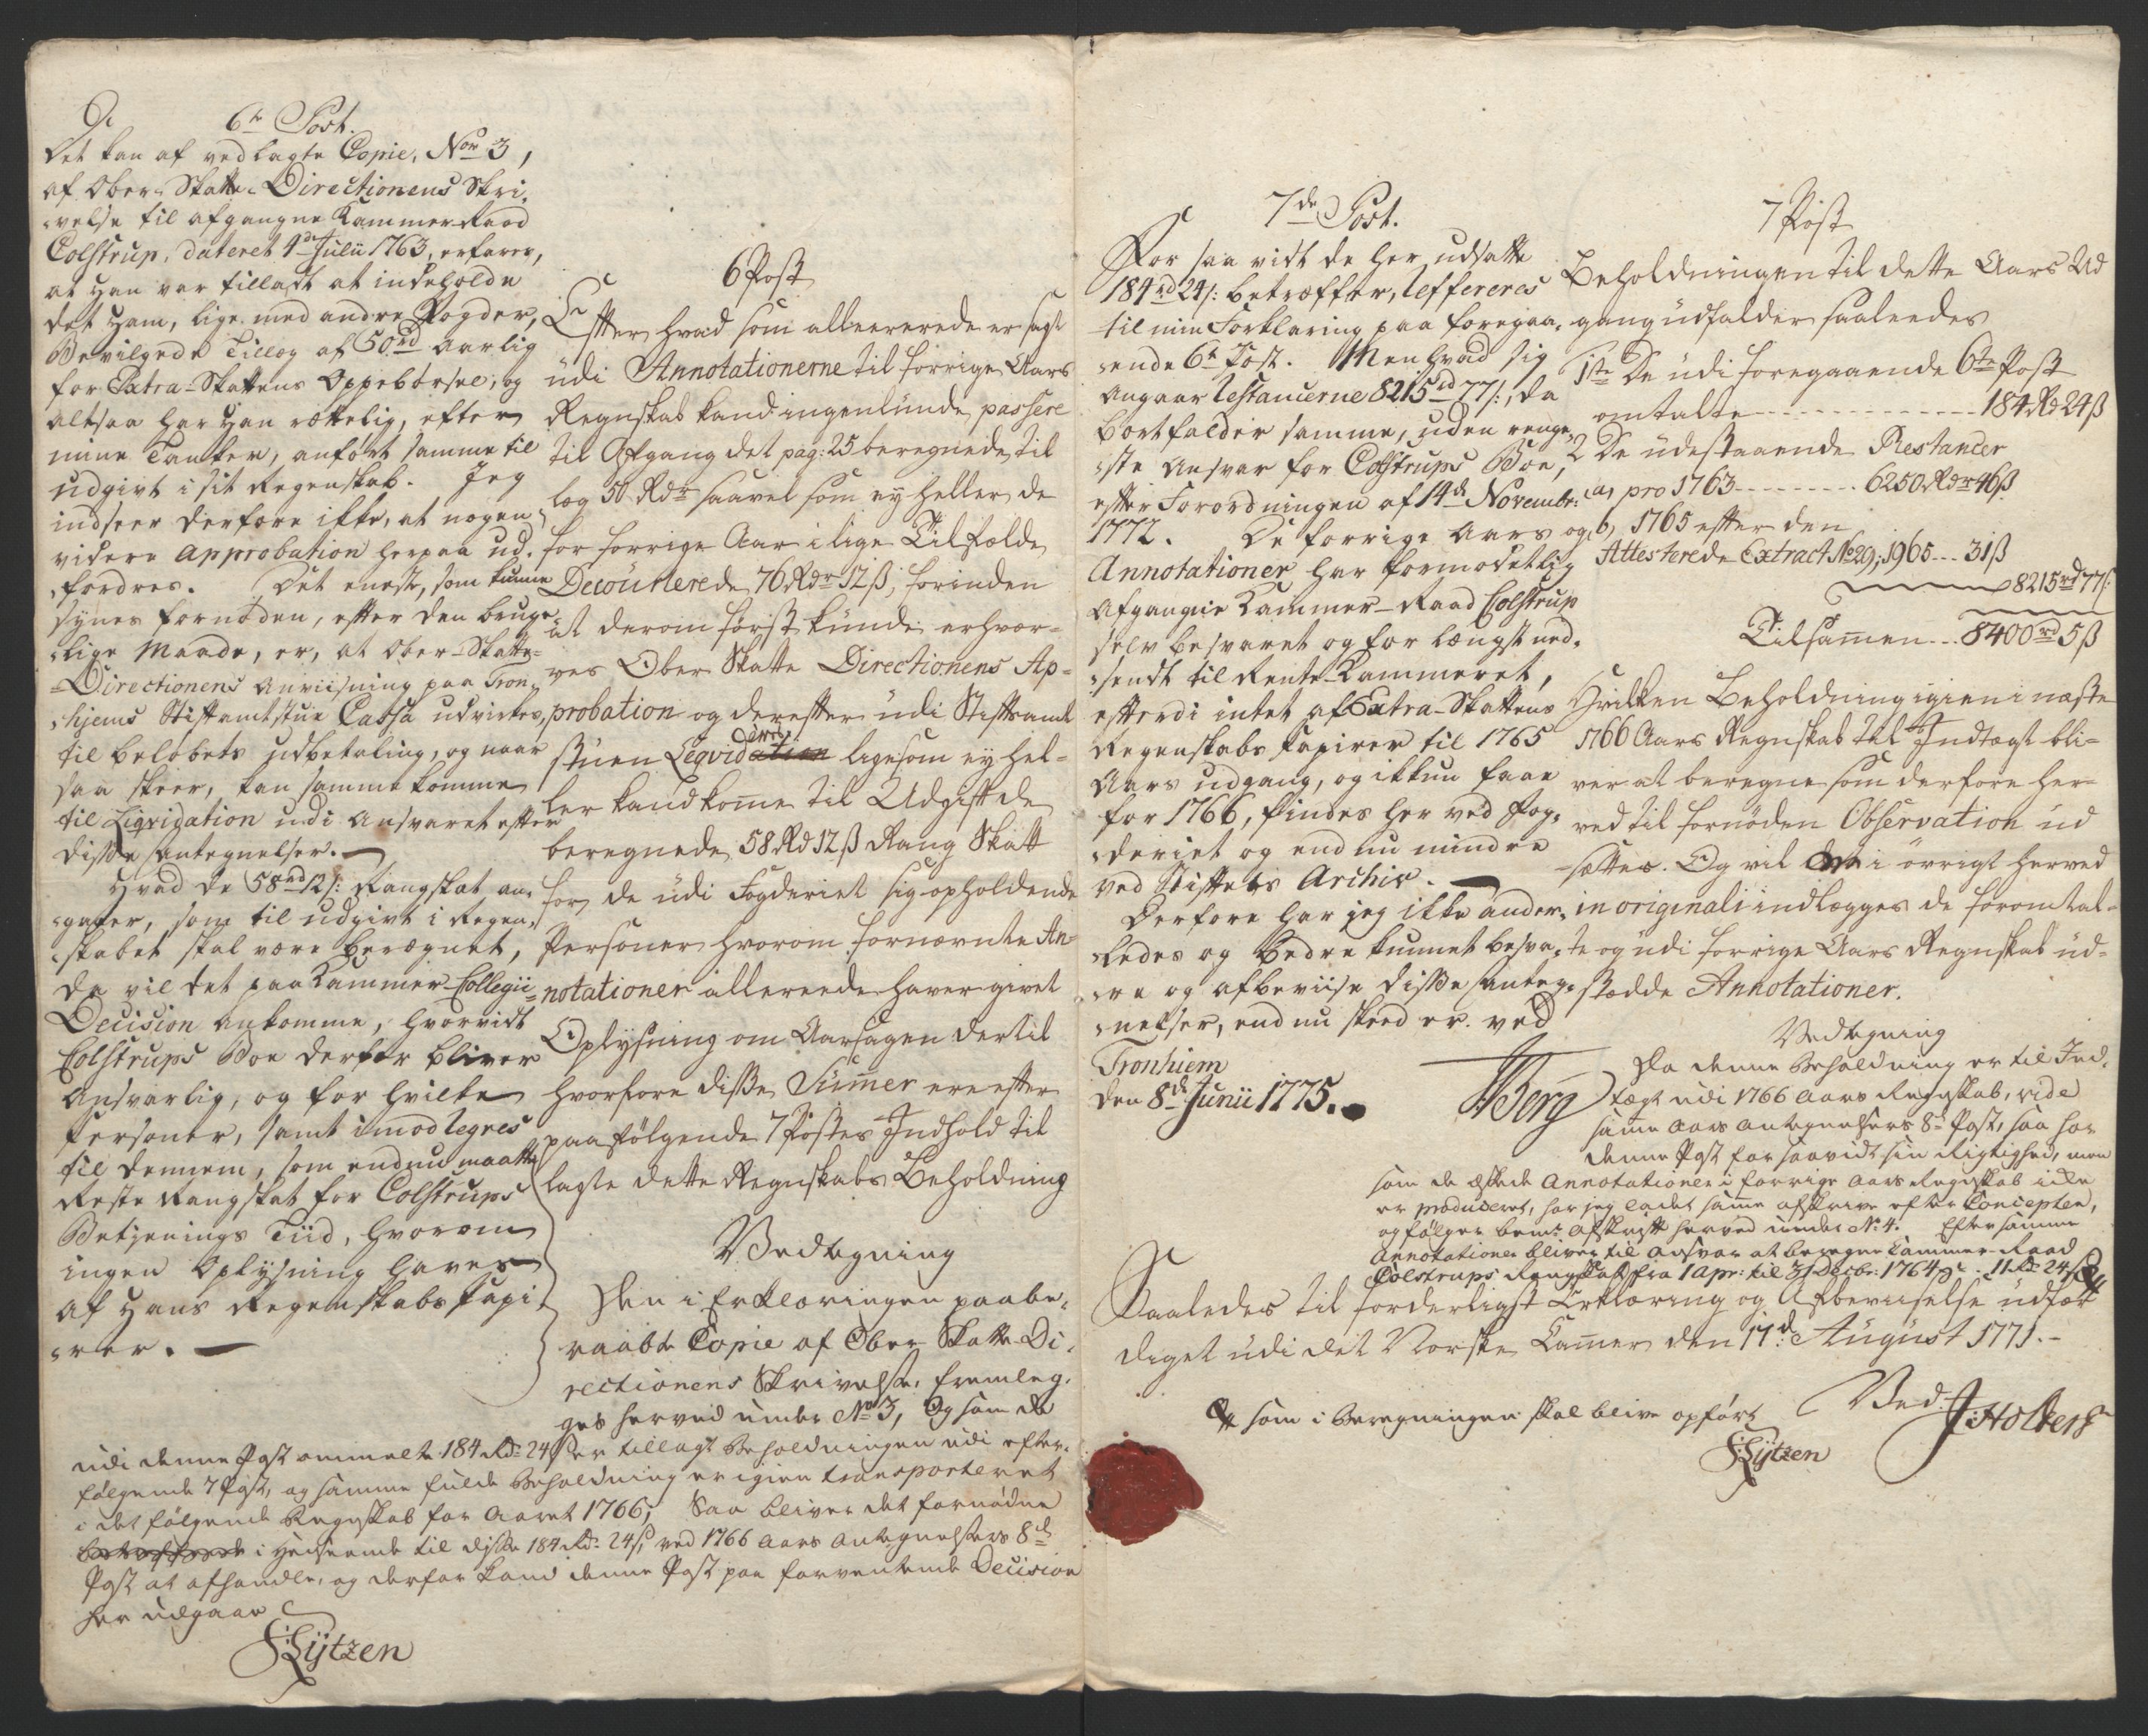 6te Post.
Det kan af vedlagte Copie, No 3,
af Ober-Skatte-Directionens Skri-
velse til afgangne Kammer-Raad
Colstrup, dateret 4de Julii 1763, erfares,
at han var tilladt at indeholde
det ham, lige med andre Fogder,
Bevilgede Tillæg af 50 rd aarlig
for Extra-Skattens Oppebørsel, og
altsaa har han rættelig, efter
mine Tanker, anført samme til
udgivt i sit Regenskab. Jeg
indseer derfore ikke, at nogen
videre approbation herpaa ud-
fordres. Det eneste, som kunne
synes fornøden, efter den bruge-
lige Maade, er, at Ober-Skatte-
Directionens Anviisning paa Tron-
hjems Stiftamtstue Cassa udvirkes,
til beløbets udbetaling, og naar
saa skeer, kan samme komme
til Liqvidation udi Ansvaret efter
disse Antegnelser.
Hvad de 58 rd 12 s: Rangskat an-
gaaer, som til udgivt i Regen-
skabet skal være beregnet,
da vil det paa Kammer-Collegii
Decision ankomme, hvorvidt
Colstrups Boe derfor bliver
Ansvarlig, og for hvilke
Personer, samt imod Regres
til dennem, som endnu maatte
Reste Rangskat for Colstrups
Betjenings Tiid, hvorom
ingen Oplysning haves
af hans Regenskabs Papi-
rer.
6 Post
Efter hvad som alleererede er sagt
udi Annotationerne til forrige Aars
Regnskab kand ingenlunde passere
til Afgang det pag: 25 beregnede til
læg 50 Rdr saavel som ey heller de
for forrige Aar i lige Tilfælde
Decourterede 76 Rdr 12 ß, forinden
at derom først kunde erhver-
ves Ober Skatte Directionens Ap-
probation og derefter udi Stiftamt
stuen Liqvideret ligesom ey hel-
ler kand kome til Udgift de
beregnede 58 Rd 12 ß Rang Skatt
for de udi Fogderiet sig opholdende
Personer hvorom fornævnte An-
notationer allereede haver givet
Oplysning om Aarsagen dertil
hvorfore disse Sumer ere efter
paafølgende 7 Postes Indhold til
lagte dette Regnskabs Beholdning
Vedtegning
Den i Erklæringen paabe-
raabte Copie af Ober Skatte Di-
rectionens Skrivelse, fremleg-
ges herved under No 3, Og som de
udi denne Post ommelte 184 Rd 24 ß er tillagt Beholdningen udi efter-
følgende 7 Post, og samme fulde Beholdning er igien transporteret
i det følgende Regnskab for Aaret 1766, Saa bliver det fornødne
i Henseende til disse 184 Rd 24 ß ved 1766 Aars Antegnelsers 8de
Post at afhandle, og derfor kand denne Post paa forventende Decision
her udgaae
Kÿtzen
7de Post.
For saa vidt de her udsatte
184 rd 24 s: betræffer, Reffereres
til min Forklaring paa foregaa-
ende 6te Post. Men hvad sig
angaar Restancerne 8215 rd 77 s:, da
bortfalder samme, uden ringe-
ste Ansvar for Colstrups Boe,
efter Forordningen af 14de Novembr:
1772. De forrige Aars
Annotationer har formodetlig
afgangne Kammer-Raad Colstrup
selv besvaret og for længst ned-
sendt til Rente-Kammeret,
efterdi intet af Extra-Skattens
Regenskabs Papirer til 1765
Aars udgang, og ikkun faae
for 1766, findes her ved Fog-
deriet og endnu mindre
ved Stiftets Archiv.
Derfore har jeg ikke ander-
ledes og bedre kunnet besva-
re og afbeviise disse Anteg-
nelser, end nu skeed er. ved
Tronhiem
den 8de Junii 1775.
Berg
7 Post
Beholdningen til dette Aars Ud
gang udfalder saaleedes
1ste De udi foregaaende 6te Post
omtalte - - - 184 Rd 24 ß
2 De udestaaende Restancer
a, pro 1763 - - - 6250 Rdr 46 ß
b, 1765 efter den
Attesterede Extract No 29, 1965 - - 31 ß
8215 rd 77 s:
Tilsamen - - 8400 rd 5 ß
Hvilken Beholdning igien i næste
1766 Aars Regnskab til Indtægt bli-
ver at beregne som derfore her-
ved til fornøden Observation ud
sættes. Og vil i øvrigt herved
in originali indlægges de foromtal-
te og udi forrige Aars Regnskab ud-
stædde Annotationer.
Vedtegning
Da denne Beholdning er til Ind-
tægt udi 1766 Aars Regnskab, vide
same Aars Antegnelsers 8de Post, saa har
denne Post forsaavidt sin Rigtighed, men
som de æskede Annotationer i forrige Aars Regnskab icke
er produceret, har jeg ladet same afskrive efter Concepten,
og følger bemte Afskrift herved under No 4. Efter samme
Annotationer bliver til Ansvar at beregne Cammer-Raad
Colstrups Rangskat fra 1 Apr: til 31 Decbr: 1764 11 Rd 24 ß
Saaledes til forderligst Erklæring og Afbeviiselse udfær
diget udi det Norske Camer den 17de August 1771.
som i Beregningen skal blive opført
Kÿtzen
Ved
J Holters